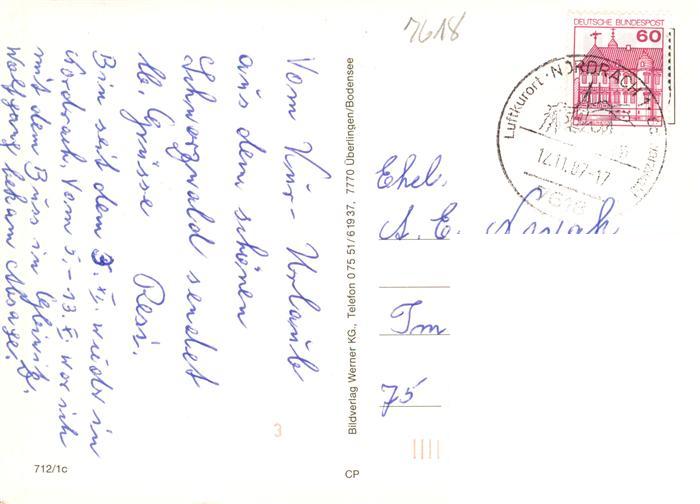 7618
DEUTSCHE BUNDESPOST
60
Luftkurort · NORDRACH
12.11.87-17
7618
Vom Kur-Urlaub
aus dem schönen
Schwarzwald sendet
lb. Grüsse
Resi.
Bin seit dem 3. XI. wieder in
Nordrach. Vom 5.-13. X. war ich
mit dem Bus in
Wolfgang bekam Absage.
Ehel.
A. E.
Im
75
Bildverlag Werner KG., Telefon 0 75 51/6 19 37, 7770 Überlingen/Bodensee
3
712/1c
CP